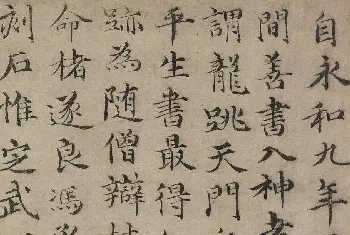 自永和九年
間善書入神
謂龍跳天門
平生書最得
跡為随僧辯
命楮遂良馮
刻石惟定武